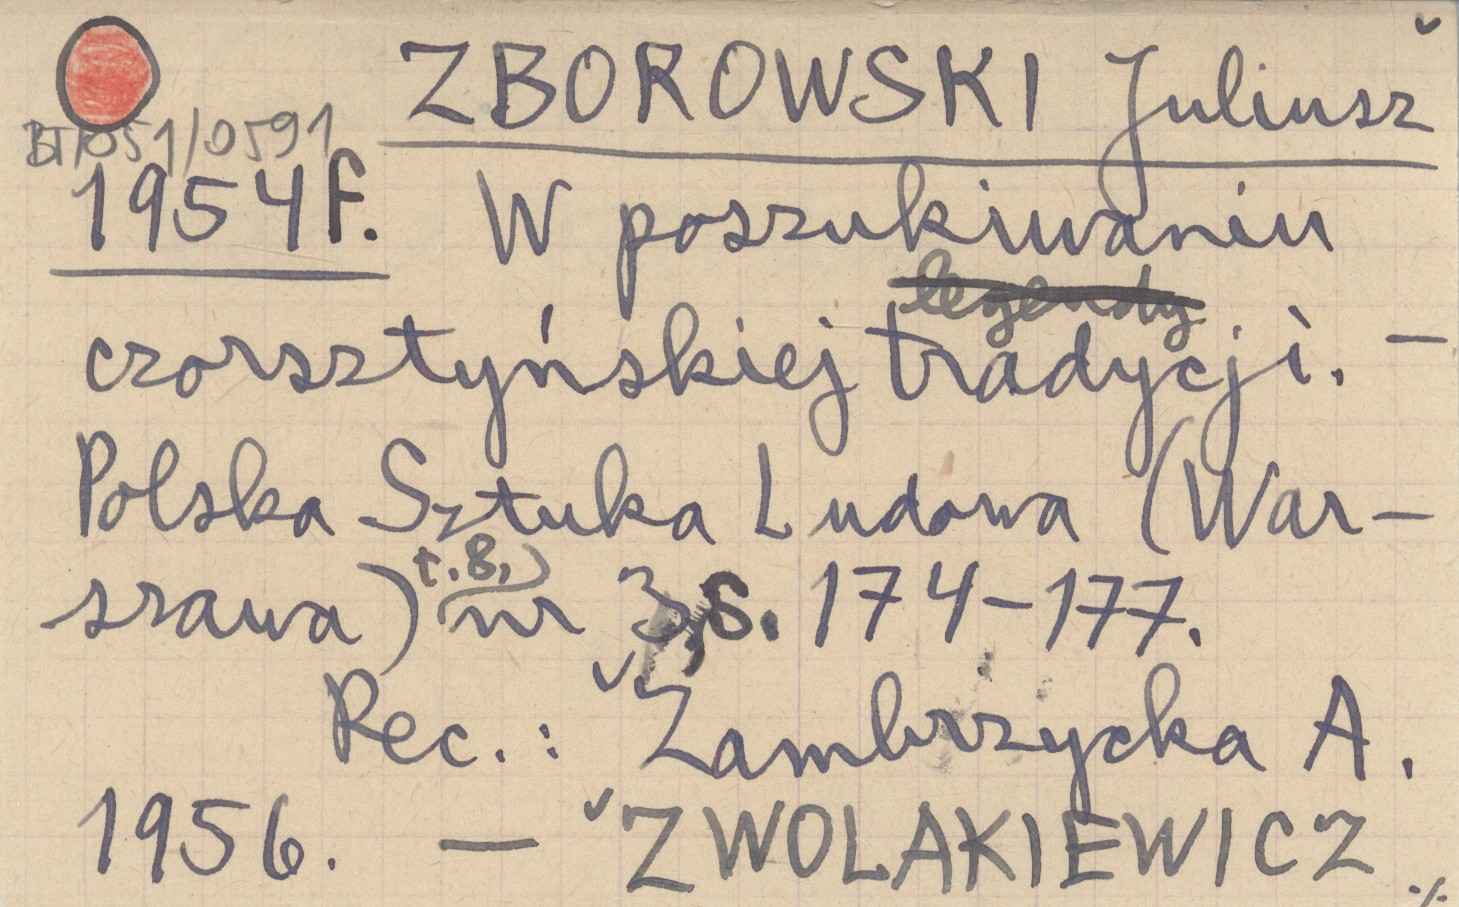 ZBOROWSKI Juliusz
BT/051/0591
1954f. W poszukiwaniu
legendy
czorsztyńskiej tradycji. —
Polska Sztuka Ludowa (War-
szawa) t. 8, nr 3, s. 174-177.
Rec.: Zambrzycka A.
1956. — ZWOLAKIEWICZ
./.